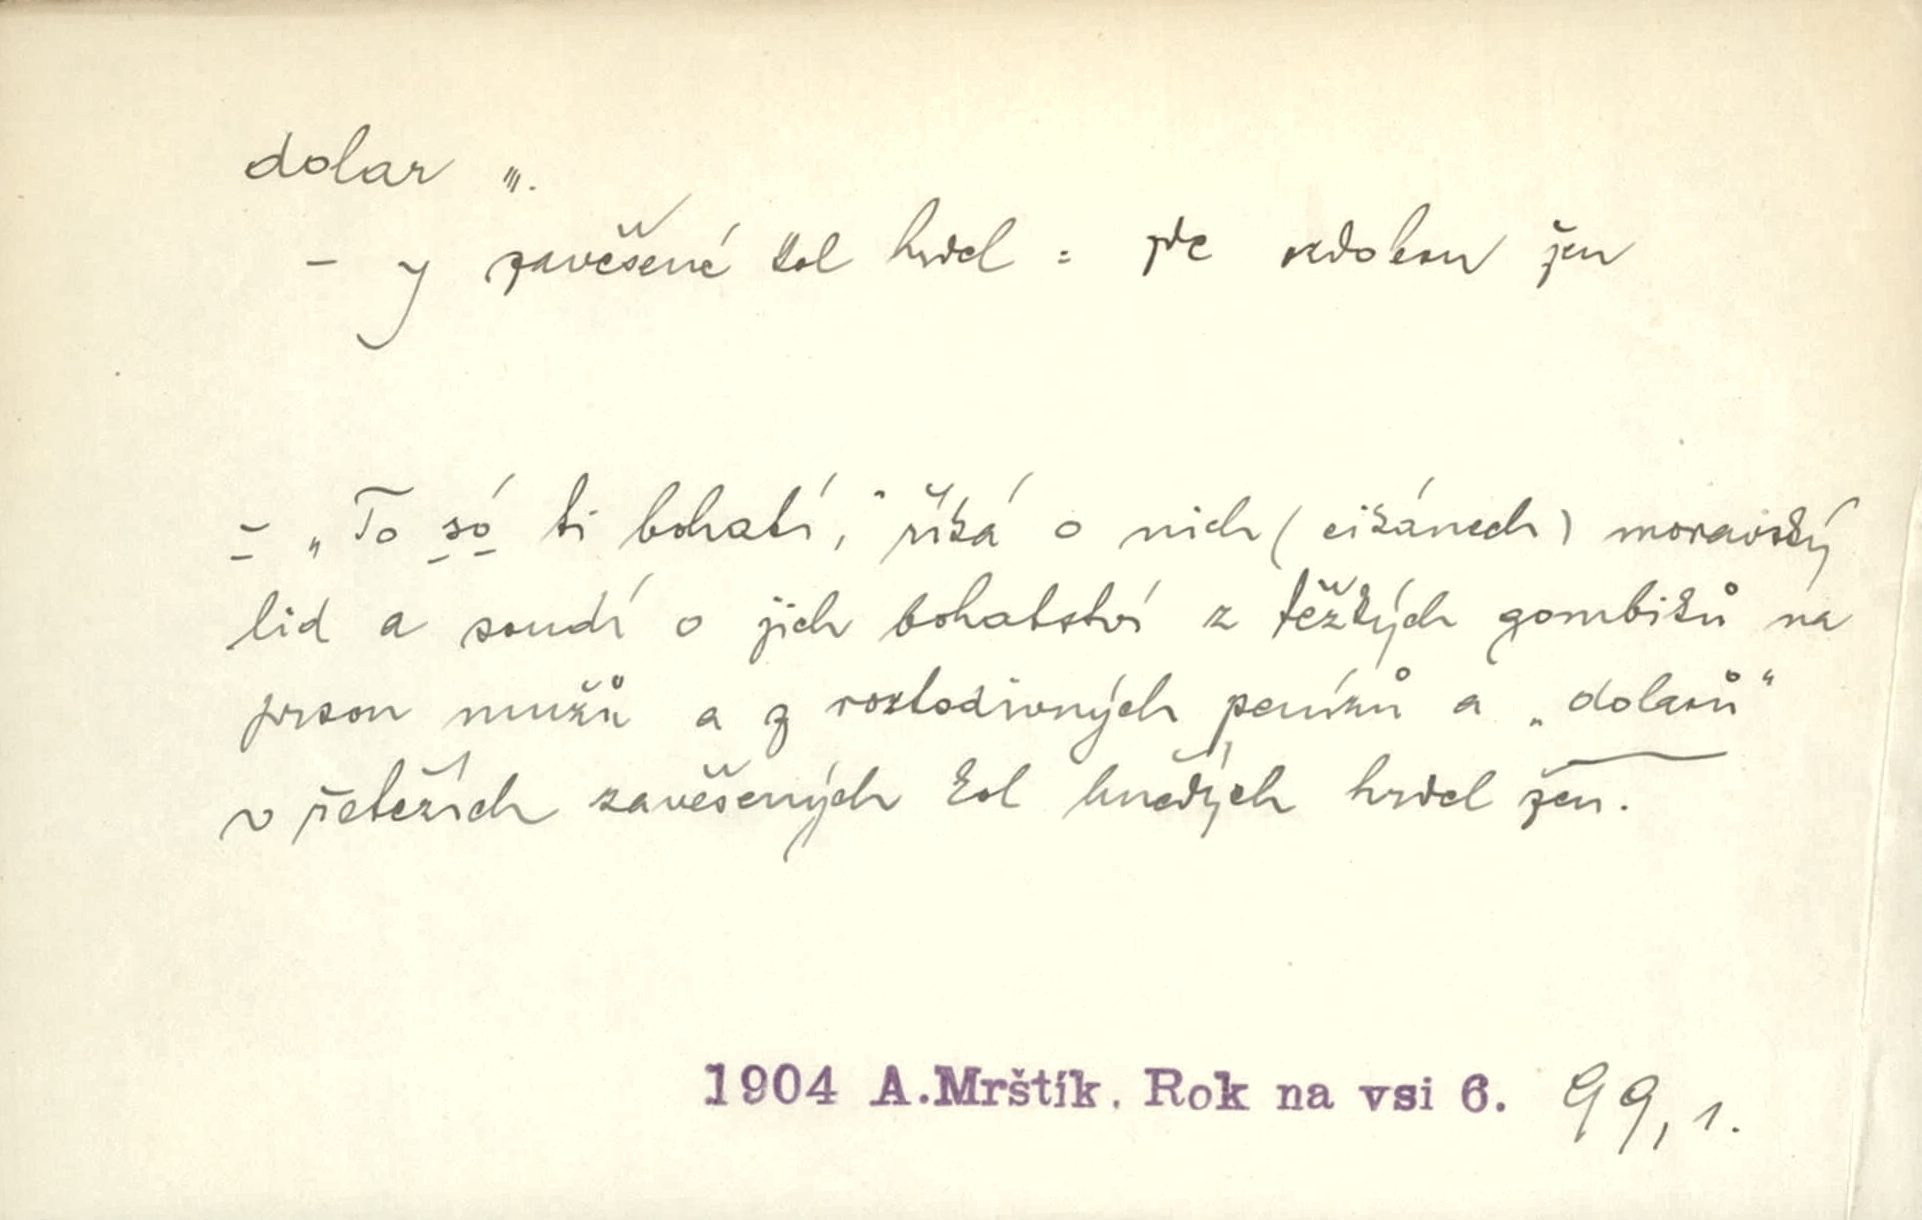 dolar m.
– y zavěšené kol hrdel = jde ozdobou žen
= „To só ti bohatí,“ říká o nich (cikánech) moravský
lid a soudí o jich bohatství z těžkých gombíků na
prsou mužů a z roztodivných penízů a „dolarů“
v řetězích zavěšených kol hnědých hrdel žen.
1904 A.Mrštík. Rok na vsi 6. 99, 1.